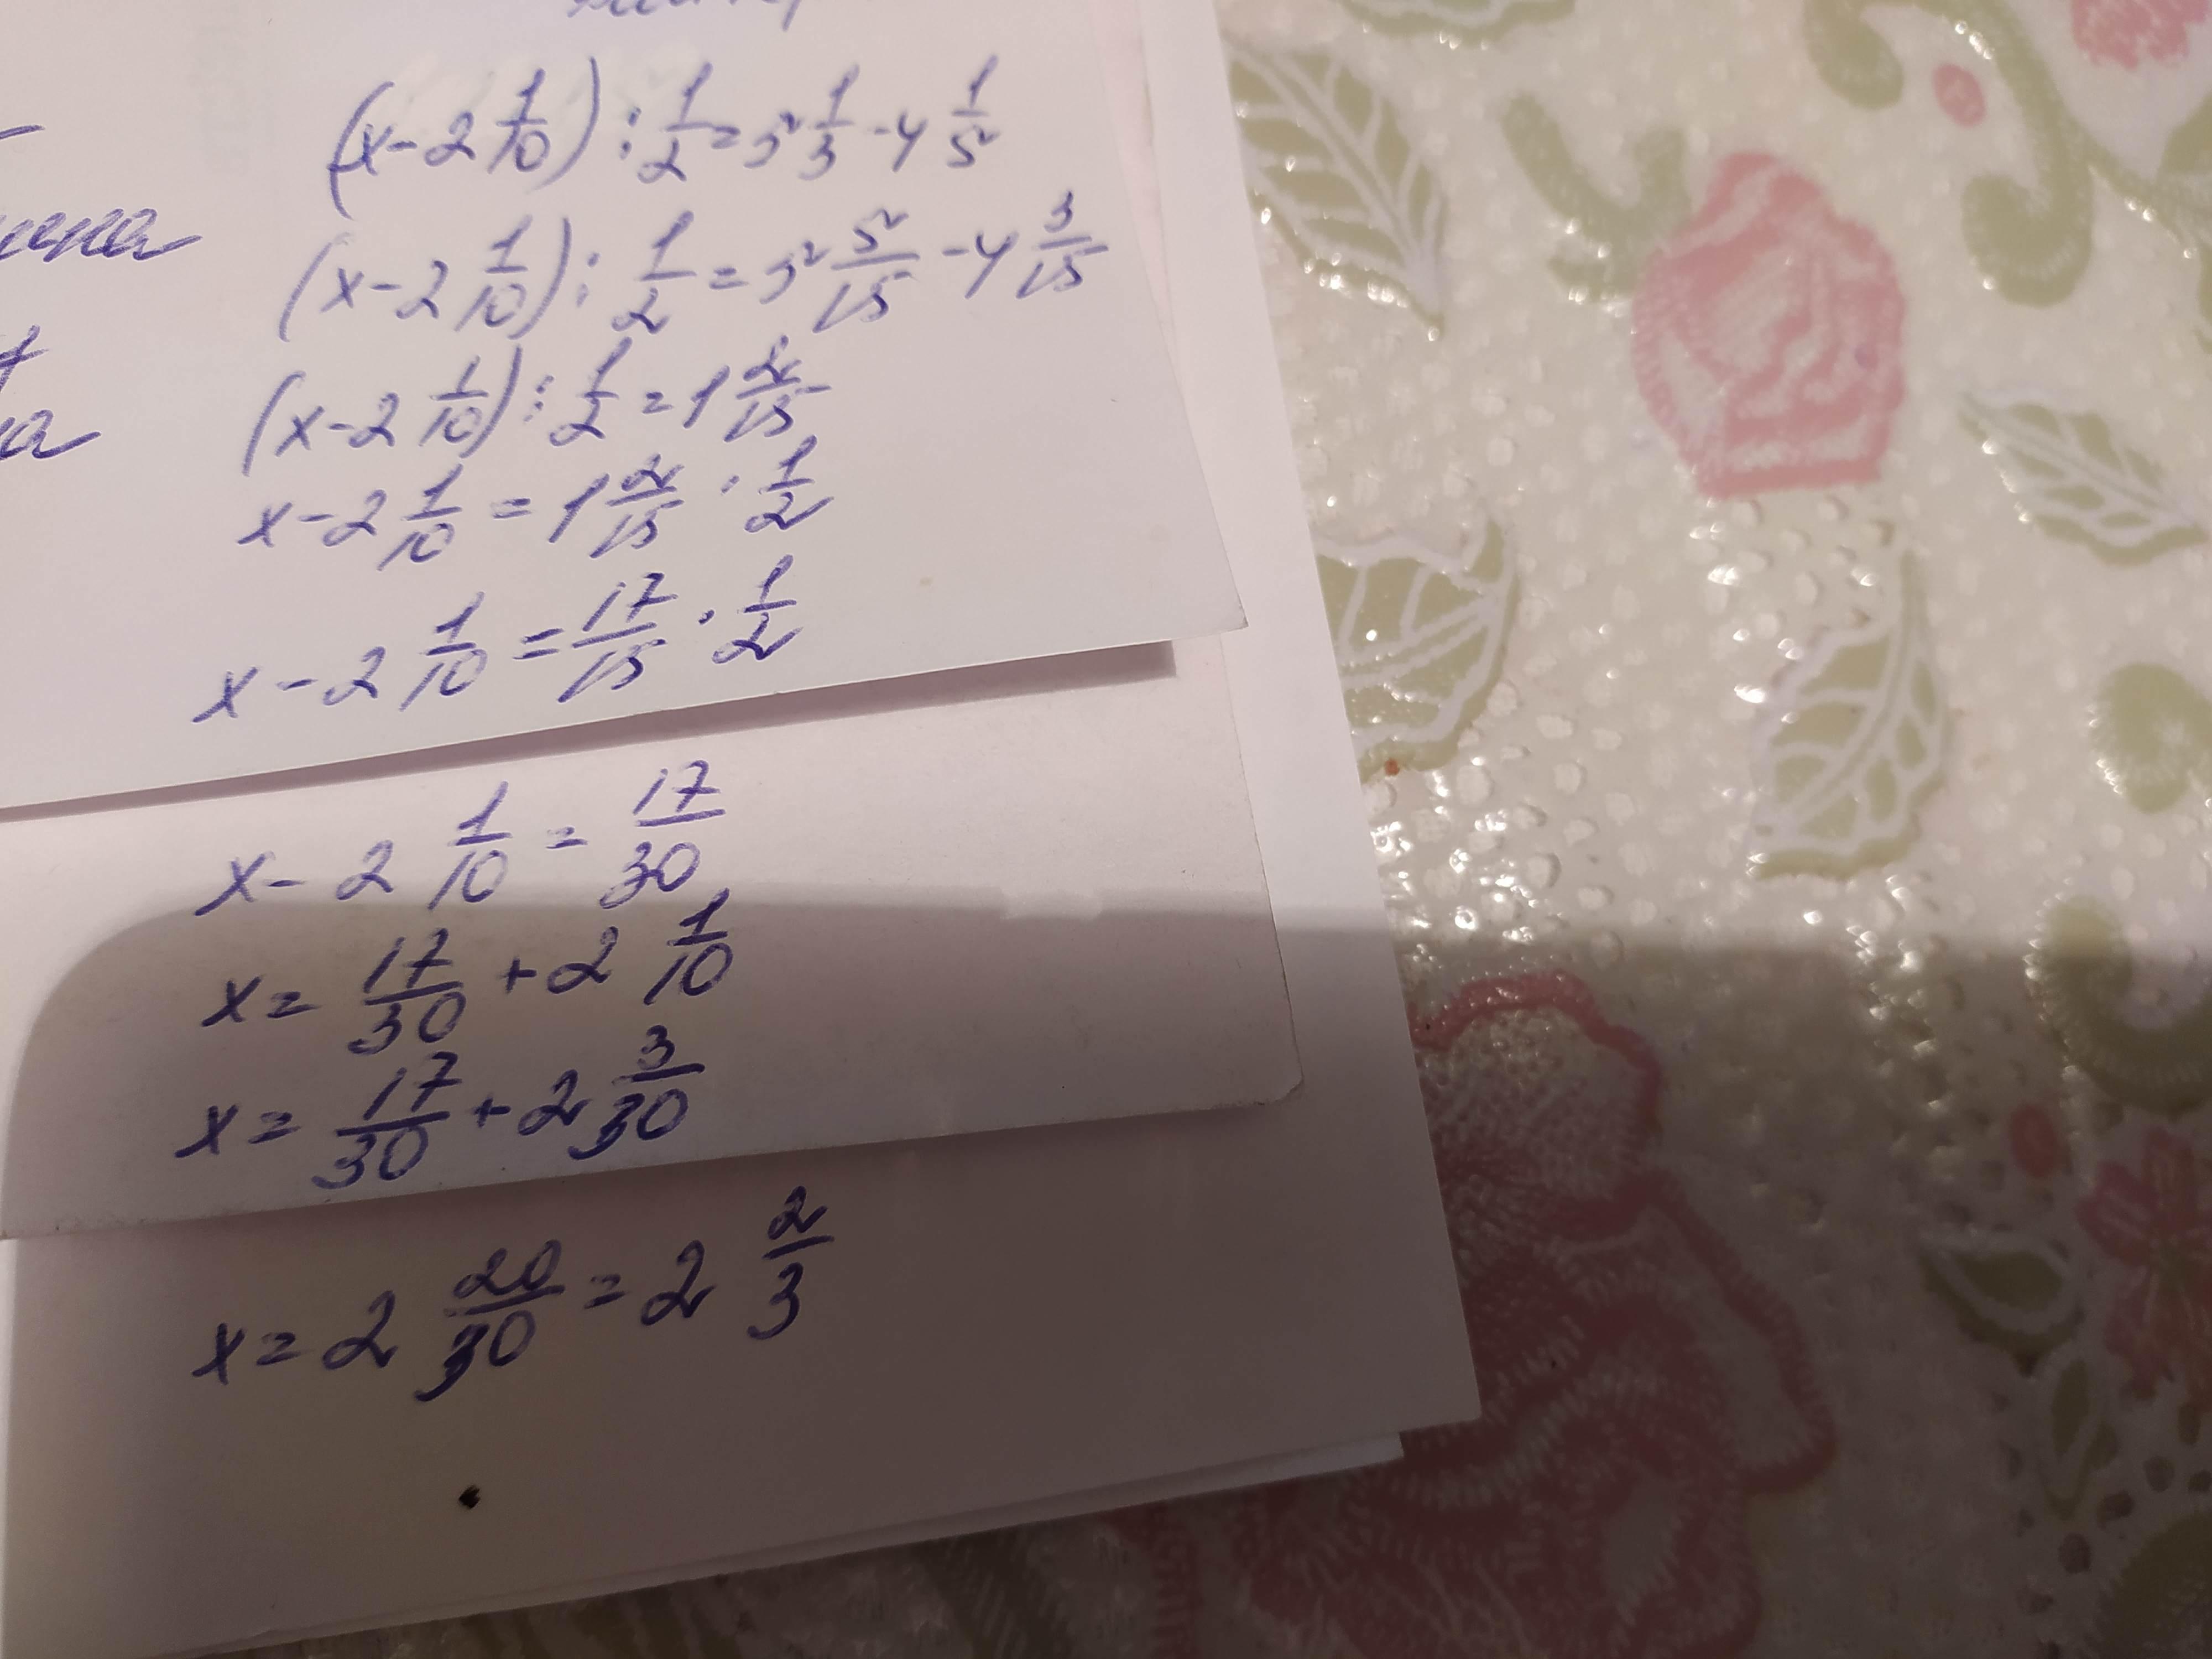 (x-2 1/10) : 1/2 = 5 1/3 - 4 1/5
(x-2 1/10) : 1/2 = 5 5/15 - 4 3/15
(x-2 1/10) : 1/2 = 1 2/15
x-2 1/10 = 1 2/15 · 1/2
x-2 1/10 = 17/15 · 1/2
x-2 1/10 = 17/30
x = 17/30 + 2 1/10
x = 17/30 + 2 3/30
x = 2 20/30 = 2 2/3